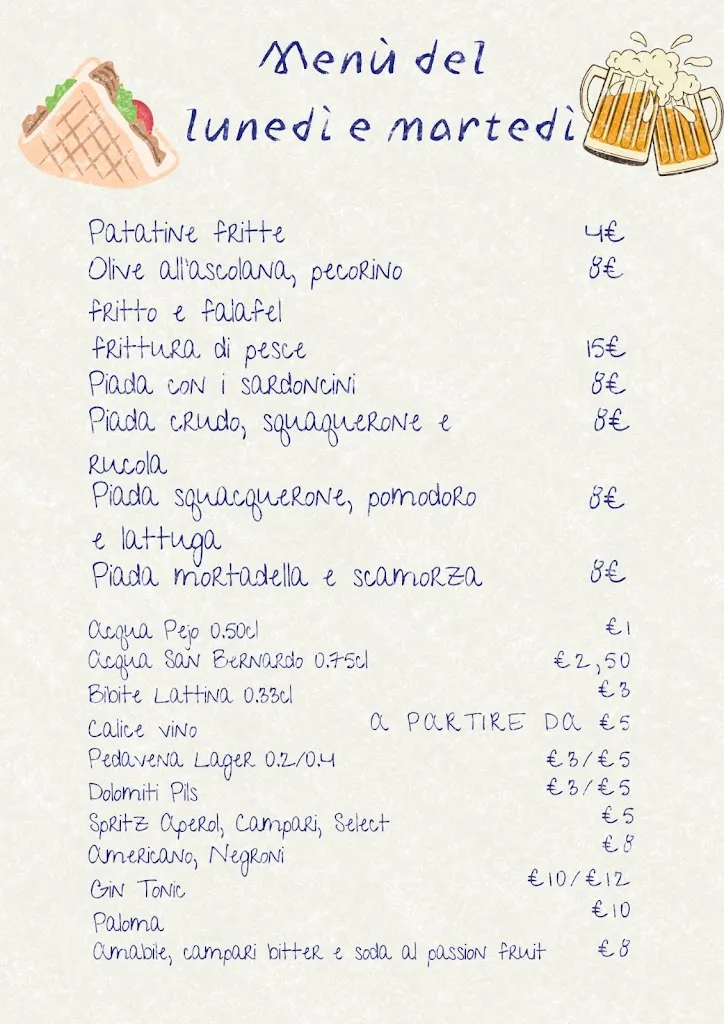 Menù del
lunedì e martedì
Patatine fritte 4€
Olive all'ascolana, pecorino 8€
fritto e falafel
frittura di pesce 15€
Piada con i sardoncini 8€
Piada crudo, squaquerone e 8€
rucola
Piada squacquerone, pomodoro 8€
e lattuga
Piada mortadella e scamorza 8€
Acqua Pejo 0.50cl €1
Acqua San Bernardo 0.75cl €2,50
Bibite Lattina 0.33cl €3
Calice vino A PARTIRE DA €5
Pedavena Lager 0.2/0.4 €3/€5
Dolomiti Pils €3/€5
Spritz Aperol, Campari, Select €5
Americano, Negroni €8
Gin Tonic €10/€12
Paloma €10
Amabile, campari bitter e soda al passion fruit €8